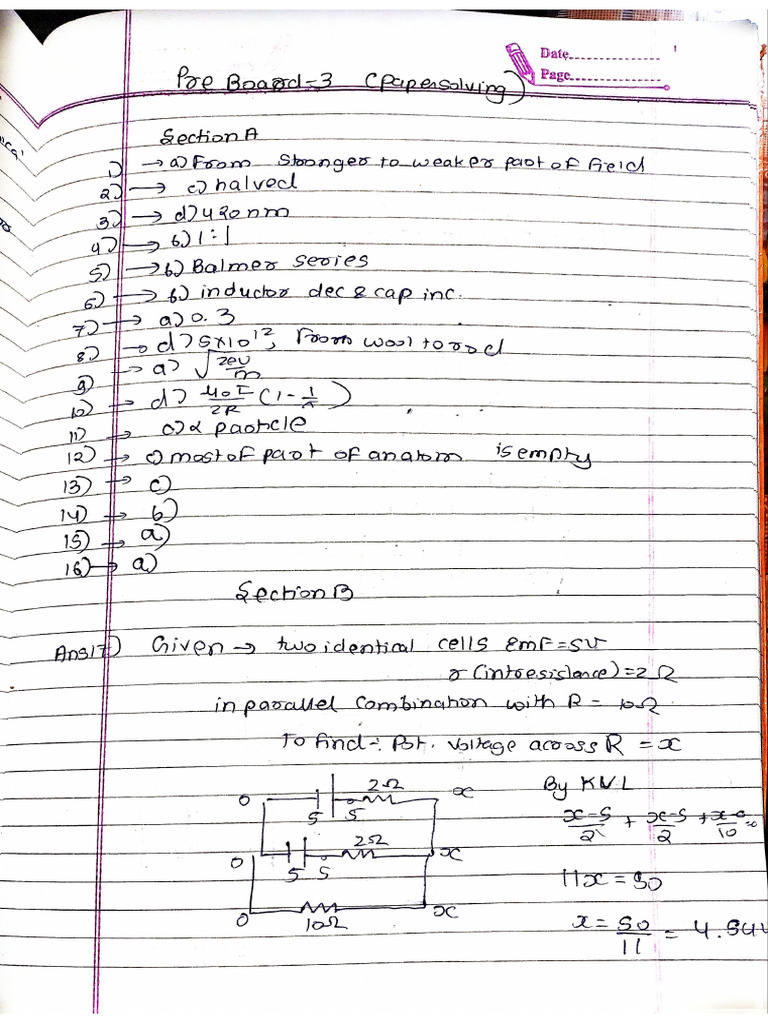 Date
Page
Pre Board-3 (Papersolving)
Section A
1) → a) From Stronger to weaker part of field
2) → c) halved
3) → d) 420nm
4) → b) 1:1
5) → b) Balmer series
6) → b) inductor dec & cap inc.
7) → a) 0.3
8) → d) 5×10¹², From wool to rod
9) → a) √(2eV/m)
10) → d) μ₀I/2R (1 - 1/π)
11) → c) α particle
12) → c) most of part of an atom is empty
13) → c)
14) → b)
15) → a)
16) → a)
Section B
Ans17) Given → two identical cells EMF = 5V
r (intresistance) = 2Ω
in parallel combination with R = 10Ω
To find:- Pot. voltage across R = x
0 5 5 2Ω x
By KVL
(x-5)/2 + (x-5)/2 + (x-0)/10 = 0
0 5 5 2Ω x
11x = 50
0 10Ω x
x = 50/11 = 4.54V